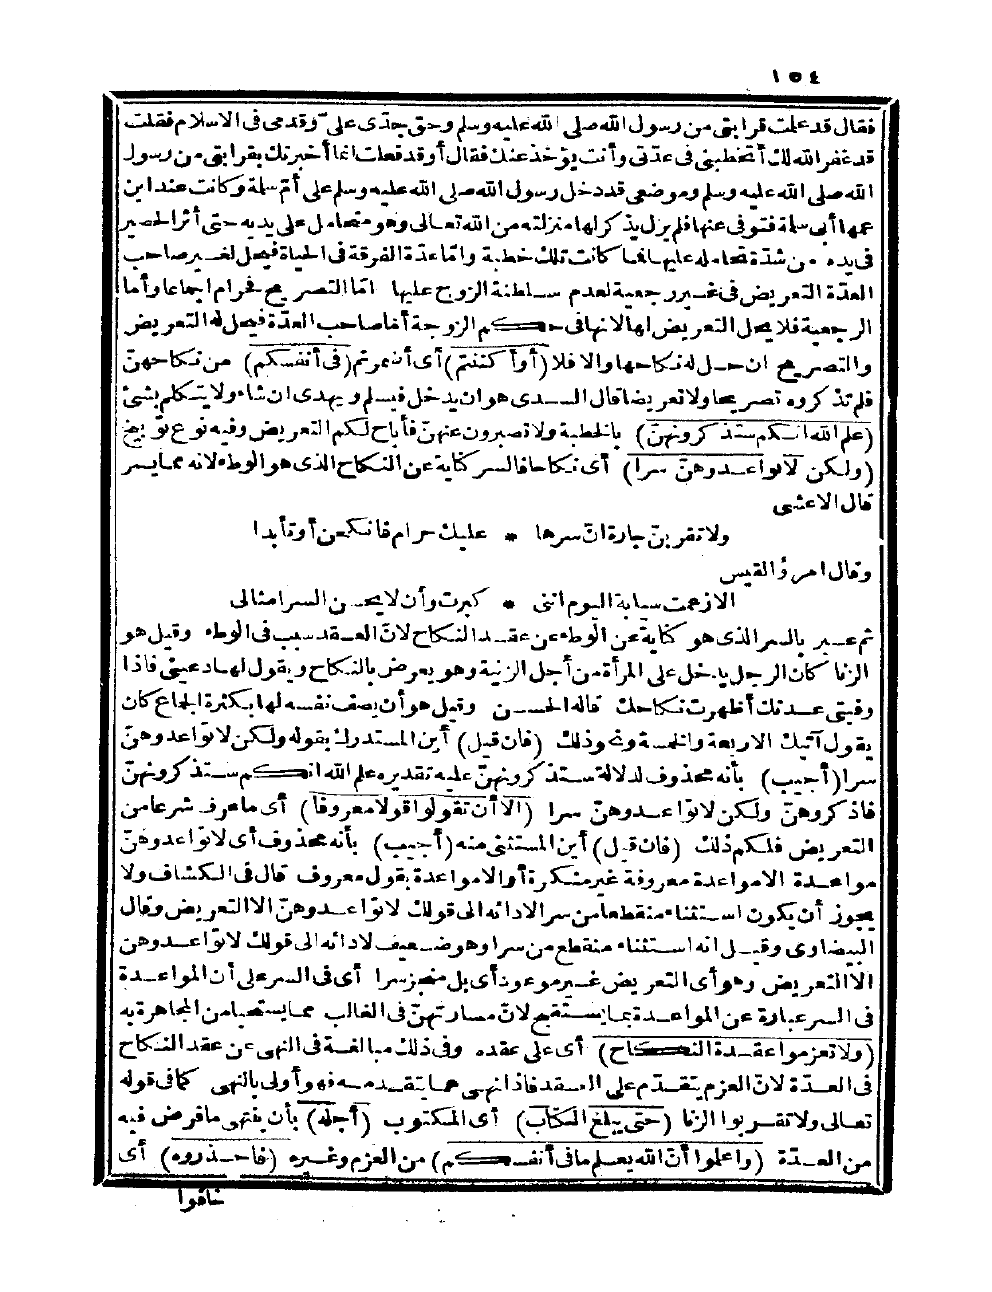 ١٥٤
فقال قد علمت قرابتى من رسول الله صلى الله عليه وسلم وحق جدّى علىّ وقدمى فى الاسلام فقلت
قد غفر الله لك أتخطبنى فى عدّتى وأنت يؤخذ عنك فقال أو قد فعلت انما أخبرتك بقرابتى من رسول
الله صلى الله عليه وسلم وموضعى قد دخل رسول الله صلى الله عليه وسلم على أمّ سلمة وكانت عند ابن
عمها أبى سلمة فتوفى عنها فلم يزل يذكر لها منزلته من الله تعالى وهو متحامل على يديه حتى أثر الحصير
فى يده من شدّة تحامله عليها فما كانت تلك خطبة وامّا عدّة الفرقة فى الحياة فيحل لغير صاحب
العدّة التعريض فى غير رجعية لعدم سلطنة الزوج عليها امّا التصريح فحرام اجماعا وأما
الرجعية فلا يحل التعريض لها لانها فى حكم الزوجة أمّا صاحب العدّة فيحل له التعريض
والتصريح ان حل له نكاحها والا فلا (أو أكننتم) أى أضمرتم (فى أنفسكم) من نكاحهنّ
فلم تذكروه تصريحا ولا تعريضا قال السدى هو ان يدخل فيسلم ويهدى ان شاء ولا يتكلم بشئ
(علم الله انكم ستذكرونهنّ) بالخطبة ولا تصبرون عنهنّ فأباح لكم التعريض وفيه نوع توبيخ
(ولكن لا تواعدوهنّ سرا) أى نكاحا فالسر كناية عن النكاح الذى هو الوطء لانه مما يسر
قال الاعشى
ولا تقربنّ جارة انّ سرها * عليك حرام فانكحن أو تأبدا
وقال امرؤ القيس
الا زعمت بسباسة اليوم اننى * كبرت وأن لا يحسن السر امثالى
ثم عبر بالسر الذى هو كناية عن الوطء عن عقد النكاح لانّ العقد سبب فى الوطء وقيل هو
الزنا كان الرجل يدخل على المرأة من أجل الزنية وهو يعرض بالنكاح ويقول لها دعينى فاذا
وفيتى عدتك أظهرت نكاحك قاله الحسن وقيل هو أن يصف نفسه لها بكثرة الجماع كان
يقول آتيك الاربعة والخمسة ونحو ذلك (فان قيل) أين المستدرك بقوله ولكن لا تواعدوهنّ
سرا (أجيب) بأنه محذوف لدلالة ستذكرونهنّ عليه تقديره علم الله انكم ستذكرونهنّ
فاذكروهنّ ولكن لا تواعدوهنّ سرا (الا أن تقولوا قولا معروفا) أى ما عرف شرعا من
التعريض فلكم ذلك (فان قيل) أين المستثنى منه (أجيب) بأنه محذوف أى لا تواعدوهنّ
مواعدة الا مواعدة معروفة غير منكرة أو الا مواعدة بقول معروف قال فى الكشاف ولا
يجوز أن يكون استثناء منقطعا من سرا لادائه الى قولك لا تواعدوهنّ الا التعريض وقال
البيضاوى وقيل انه استثناء منقطع من سرا وهو ضعيف لادائه الى قولك لا تواعدوهن
الا التعريض وهو أى التعريض غير موعود أى بل منجز سرا أى فى السر على أن المواعدة
فى السر عبارة عن المواعدة بما يستقبح لانّ مسارتهنّ فى الغالب مما يستحيا من المجاهرة به
(ولا تعزموا عقدة النكاح) أى على عقده وفى ذلك مبالغة فى النهى عن عقد النكاح
فى العدّة لانّ العزم يتقدّم على العقد فاذا نهى عما يتقدمه فهو أولى بالنهى كما فى قوله
تعالى ولا تقربوا الزنا (حتى يبلغ الكتاب) أى المكتوب (أجله) بأن ينتهى ما فرض فيه
من العدّة (واعلموا أنّ الله يعلم ما فى أنفسكم) من العزم وغيره (فاحذروه) أى
خافوا